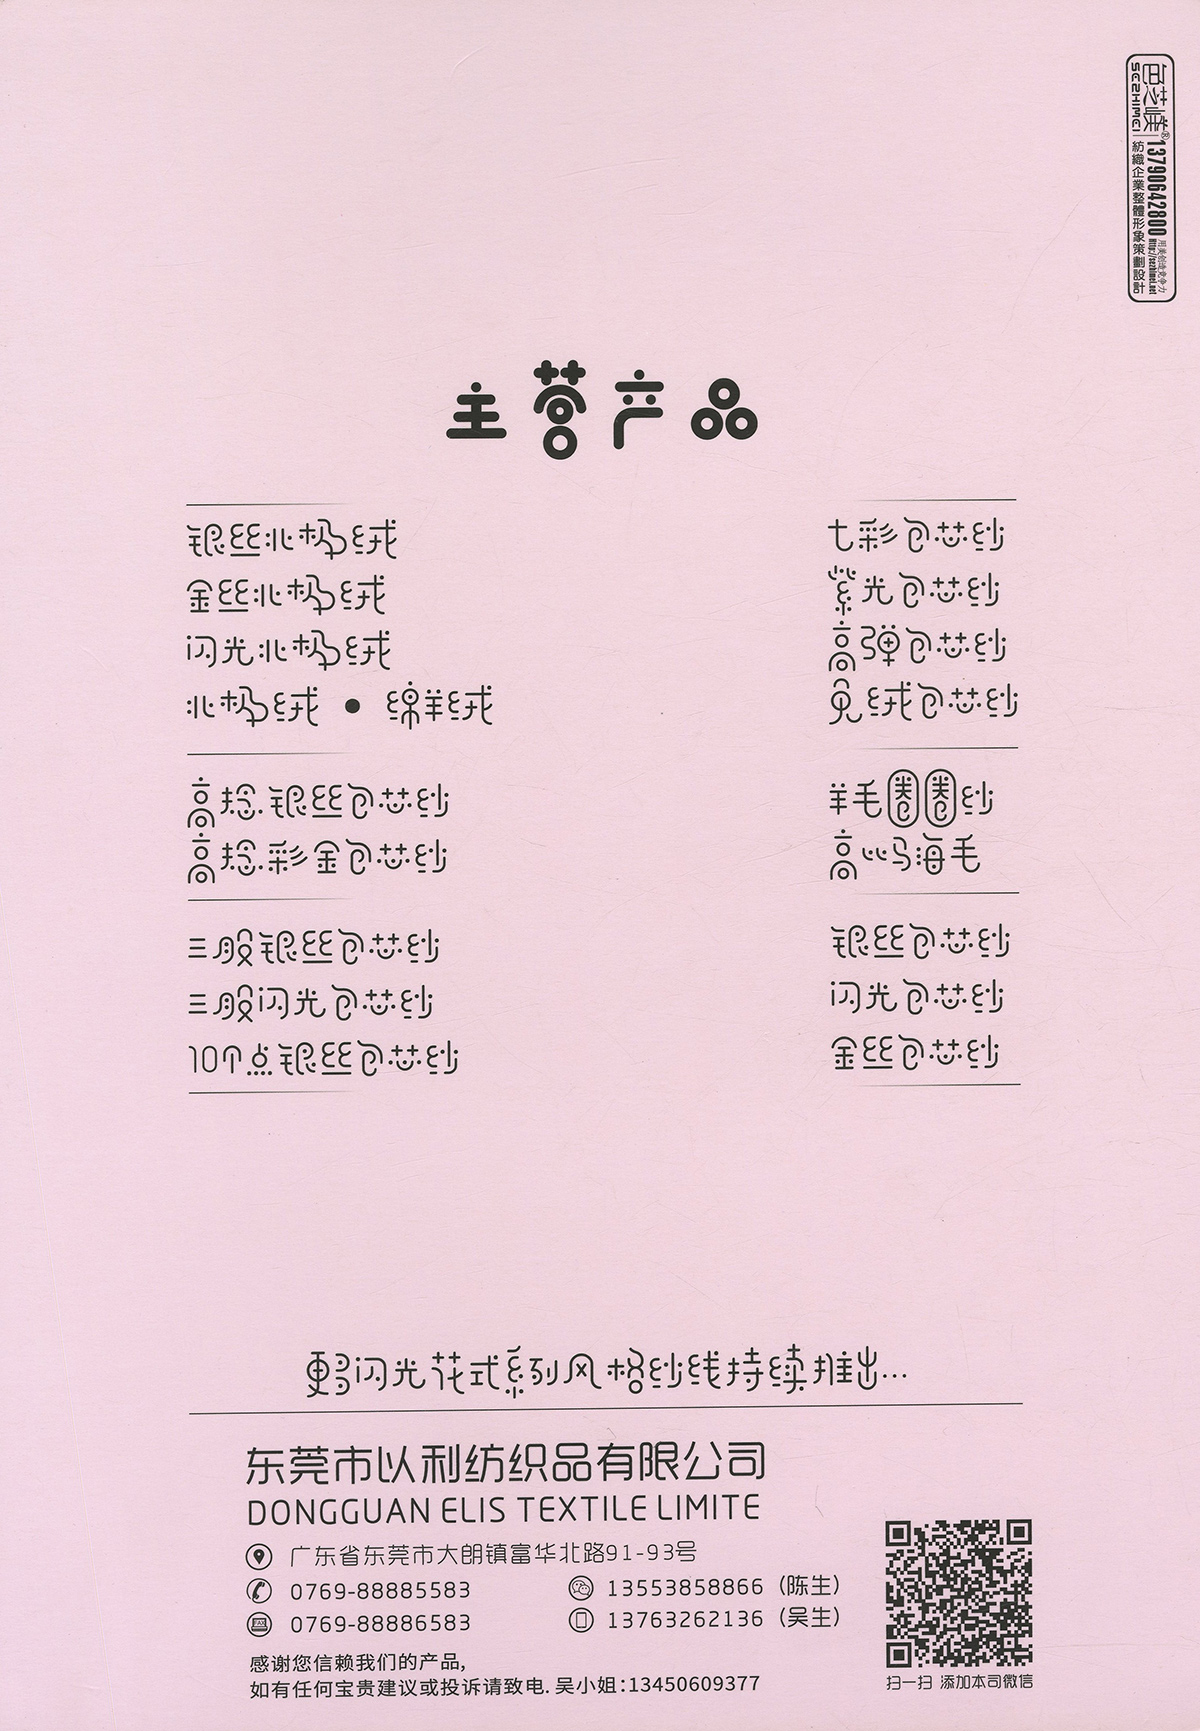 色芝嵄®
SEZHIMEI
13790642800
用美创造竞争力
http://sezhimei.net
紡織企業整體形象策劃設計
主营产品
银丝北极绒
金丝北极绒
闪光北极绒
北极绒 ● 绵羊绒
高捻银丝包芯纱
高捻彩金包芯纱
三股银丝包芯纱
三股闪光包芯纱
10个点银丝包芯纱
七彩包芯纱
紫光包芯纱
高弹包芯纱
兔绒包芯纱
羊毛圈圈纱
高比马海毛
银丝包芯纱
闪光包芯纱
金丝包芯纱
更多闪光花式系列风格纱线持续推出...
东莞市以利纺织品有限公司
DONGGUAN ELIS TEXTILE LIMITE
广东省东莞市大朗镇富华北路91-93号
0769-88885583
13553858866（陈生）
FAX
0769-88886583
13763262136（吴生）
感谢您信赖我们的产品,
如有任何宝贵建议或投诉请致电. 吴小姐:13450609377
扫一扫 添加本司微信